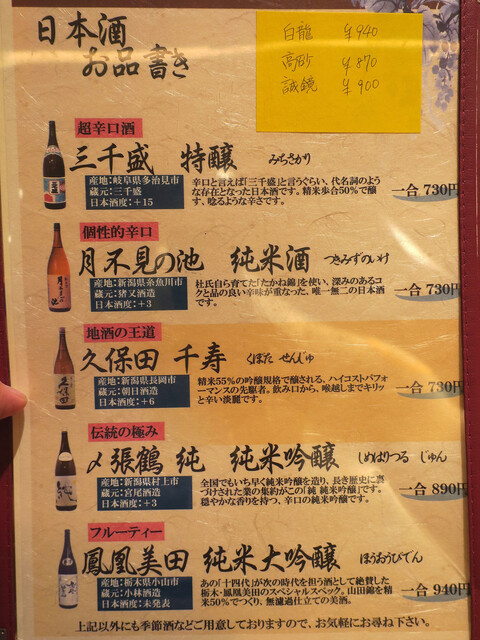 日本酒
お品書き
白龍 ¥940
高砂 ¥870
誠鏡 ¥900
超辛口酒
三千盛 特醸 みちさかり
産地:岐阜県多治見市
蔵元:三千盛
日本酒度:+15
辛口と言えば「三千盛」と言うぐらい、代名詞のよう
な存在となった日本酒です。精米歩合50%で醸
す、唸るような辛さです。
一合 730円
個性的辛口
月不見の池 純米酒 つきみずのいけ
産地:新潟県糸魚川市
蔵元:猪又酒造
日本酒度:+3
杜氏自ら育てた「たかね錦」を使い、深みのあるコ
クと品の良い辛味が重なった、唯一無二の日本酒
です。
一合 730円
地酒の王道
久保田 千寿 くぼた せんじゅ
産地:新潟県長岡市
蔵元:朝日酒造
日本酒度:+6
精米55%の吟醸規格で醸される、ハイコストパフォ
ーマンスの先駆者。飲み口から、喉越しまでキリッ
と辛い淡麗です。
一合 730円
伝統の極み
〆張鶴 純 純米吟醸 しめはりつる じゅん
産地:新潟県村上市
蔵元:宮尾酒造
日本酒度:+3
全国でもいち早く純米吟醸を造り、長き歴史に裏
づけされた業の集約がこの「純 純米吟醸」です。
穏やかな香りを持つ、辛口の純米吟醸です。
一合 890円
フルーティー
鳳凰美田 純米大吟醸 ほうおうびでん
産地:栃木県小山市
蔵元:小林酒造
日本酒度:未発表
あの「十四代」が次の時代を担う酒として絶賛した
栃木・鳳凰美田のスペシャルスペック。山田錦を精
米50%でつくり、無濾過仕立ての美酒。
一合 940円
上記以外にも季節酒などご用意しておりますので、お気軽にお尋ね下さい。